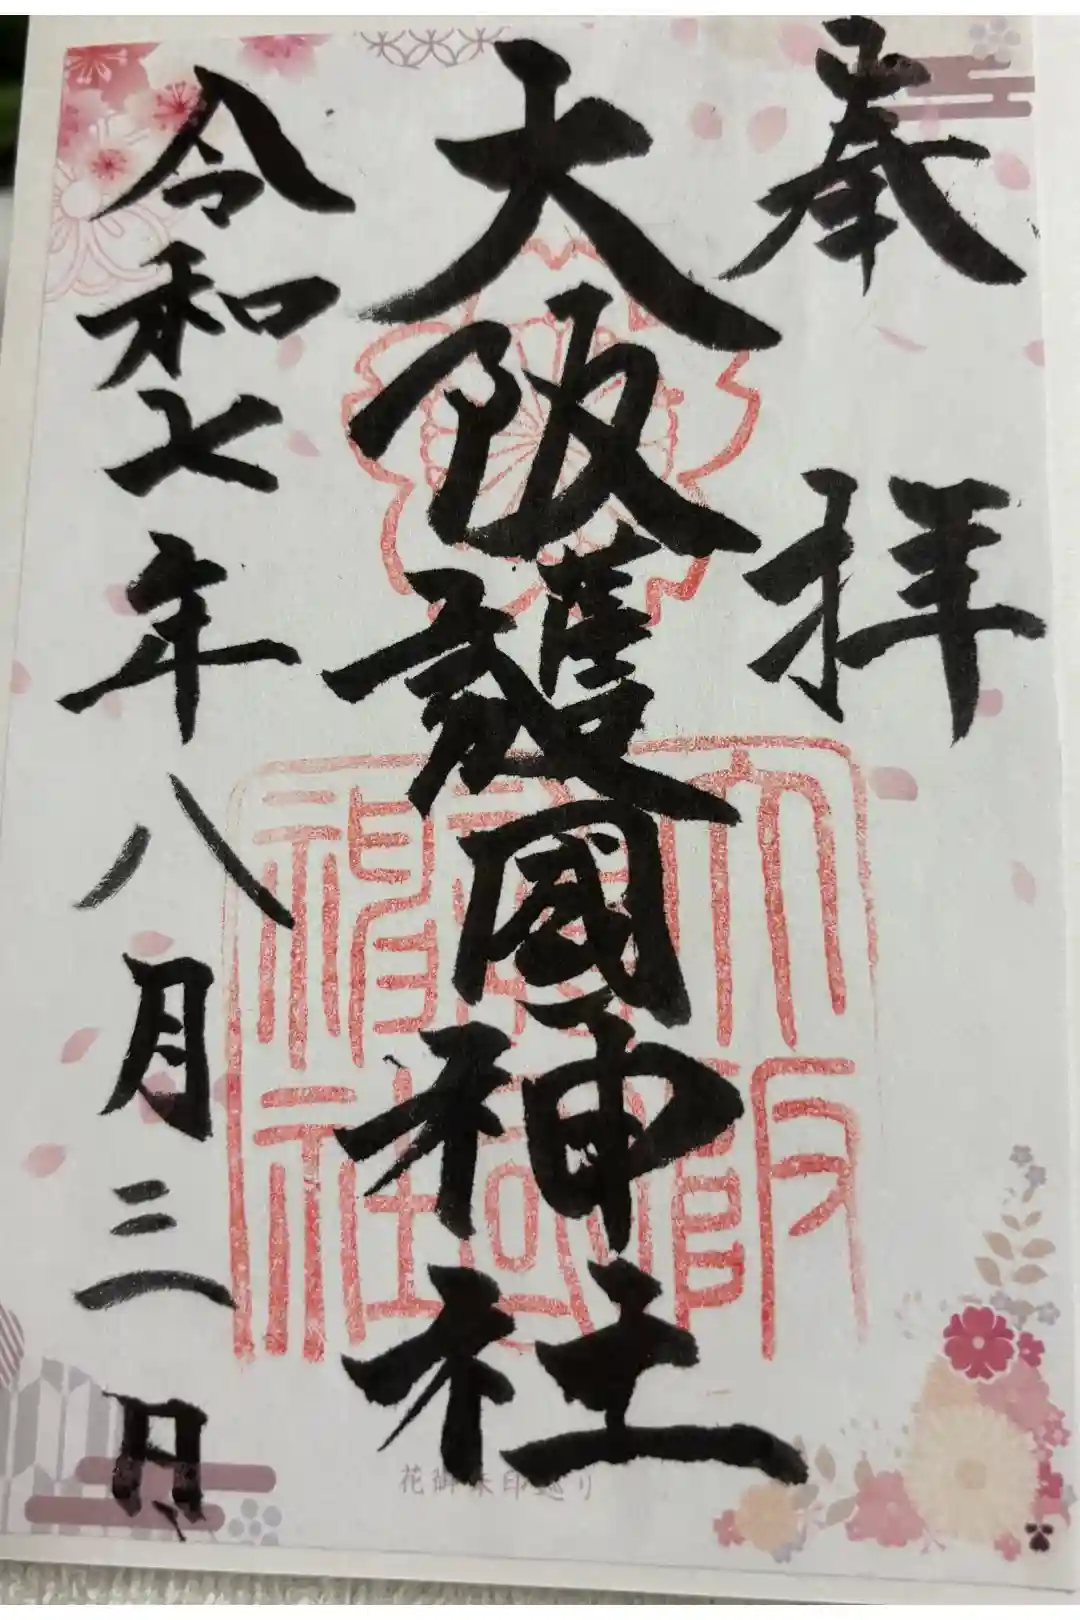 奉拝
大阪護國神社
大阪護國神社
令和七年八月三日
花御朱印巡り